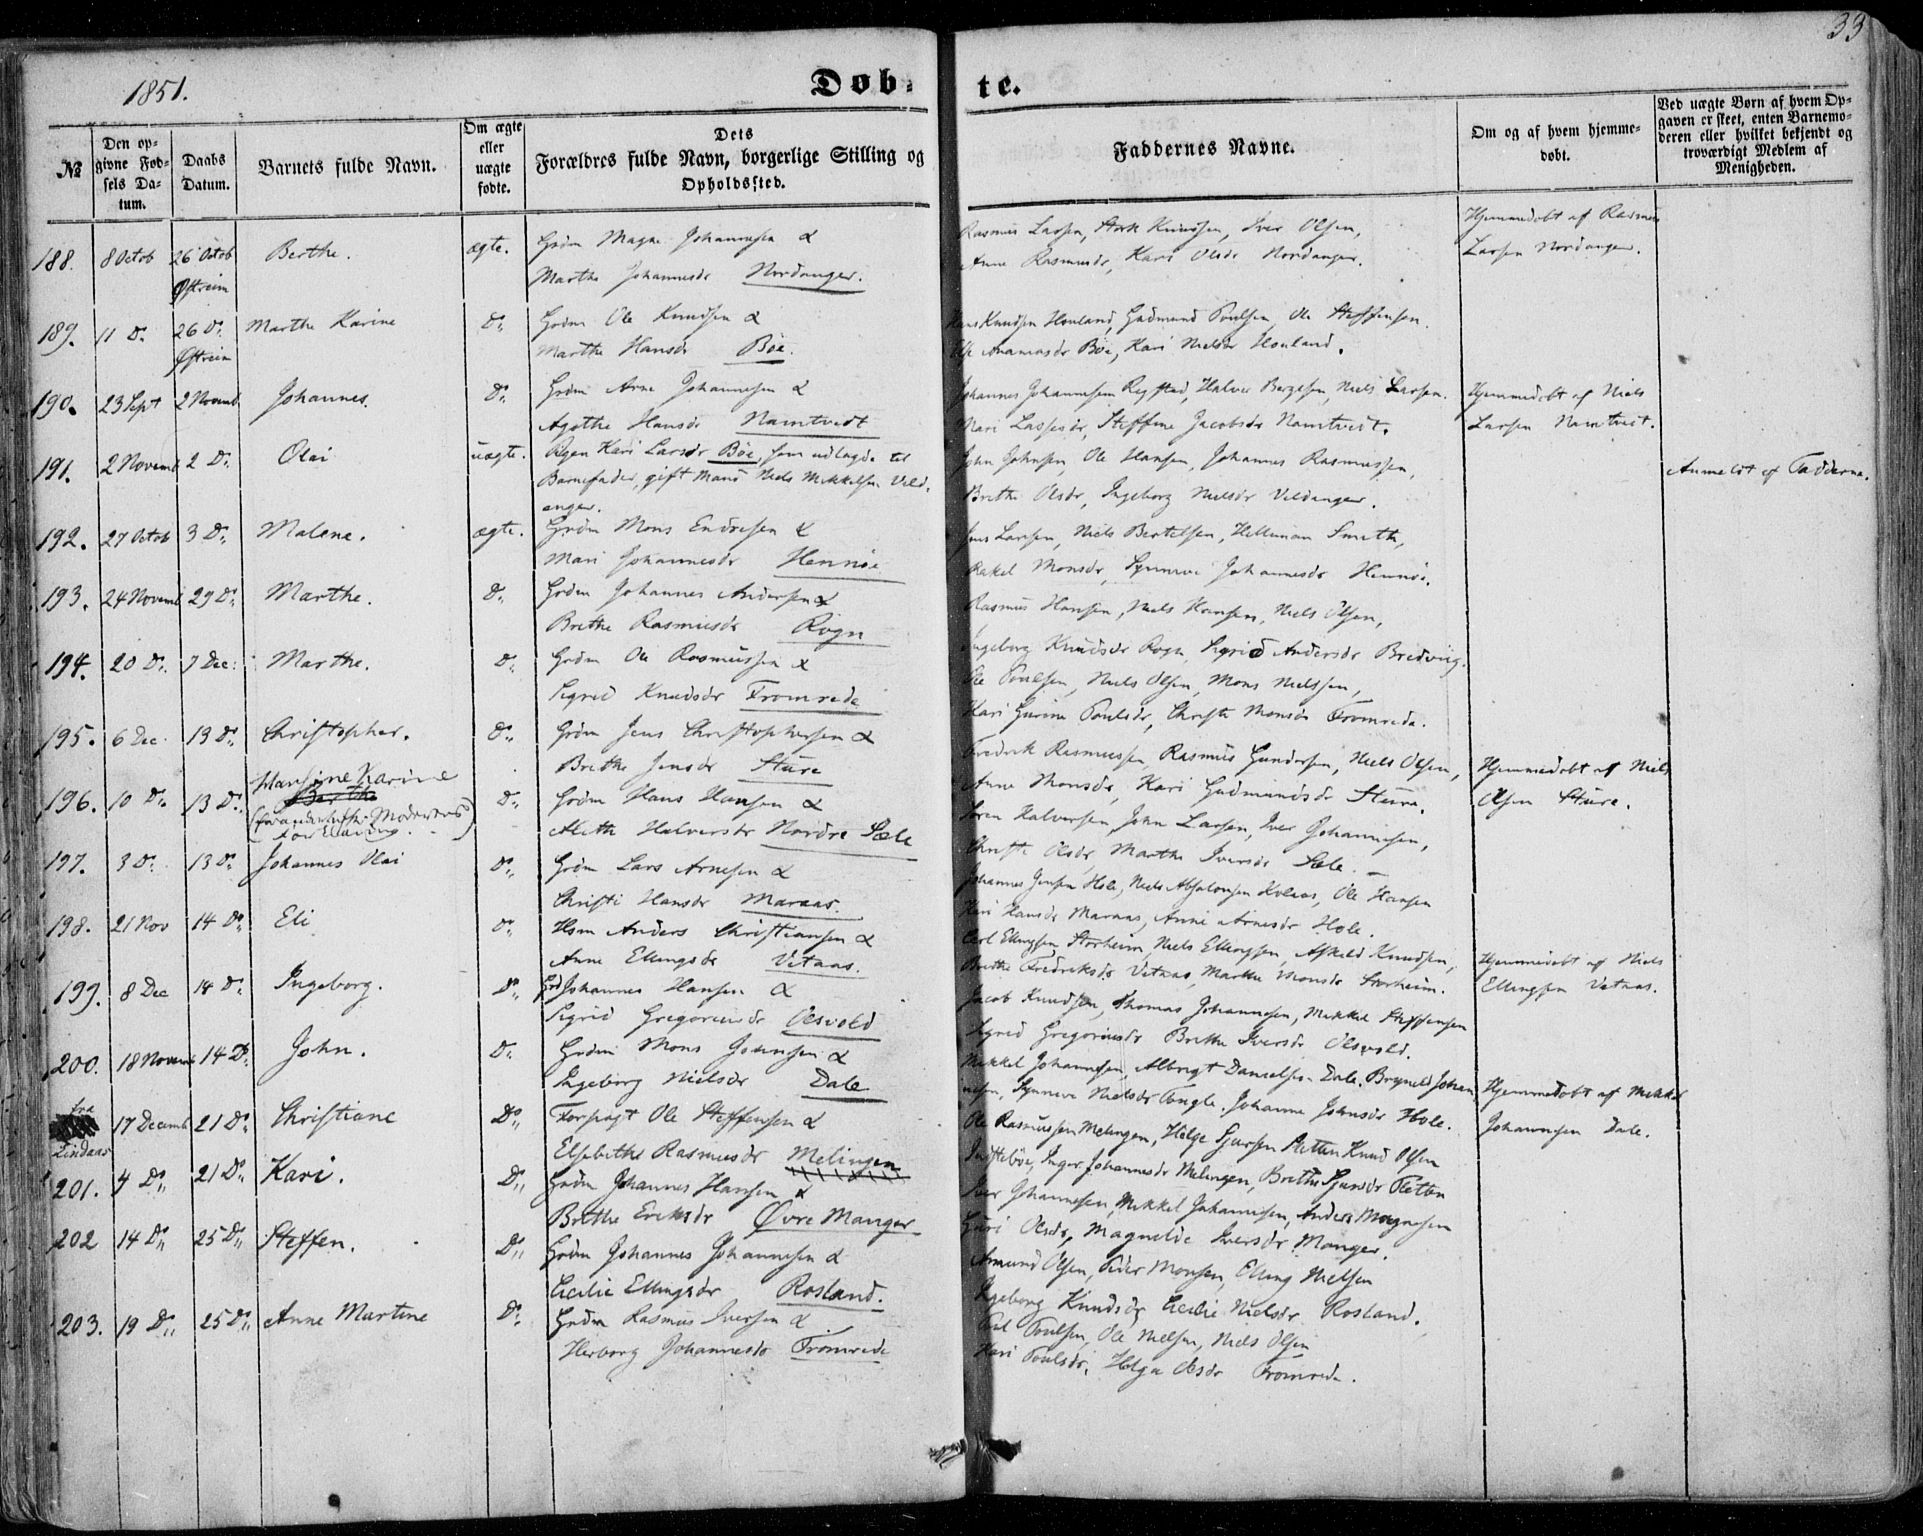 33
1851.
Døb-
te.
№
Den op-
givne Fød-
sels Da-
tum.
Daabs
Datum.
Barnets fulde Navn.
Om ægte
eller
uægte
fødte.
Dets
Forældres fulde Navn, borgerlige Stilling og
Opholdssted.
Faddernes Navne.
Om og af hvem hjemme-
døbt.
Ved uægte Børn af hvem Op-
gaven er skeet, enten Barnemo-
deren eller hvilket bekjendt og
troværdigt Medlem af
Menigheden.
188. 8 Octob 26 Octob Berthe. ægte. Grdm Magne Johannesen &
Østreim Marthe Johannesdr Nordanger.
Rasmus Larsen, Stork Knudsen, Iver Olsen,
Anne Rasmusdr, Kari Olsdr Nordanger.
Hjemmedøbt af Rasmus
Larsen Nordanger.
189. 11 D. 26 D. Marthe Karine D. Grdm Ole Knudsen &
Østreim Marthe Hansdr Böe.
Knudsen Houland, Gudmund Poulsen, Ole Steffensen.
Böe, Kari Nielsdr Houland.
190. 23 Sept 2 Novemb Johannes. D. Grdm Arne Johannesen &
Agathe Hansdr Namtvedt
Johannes Johannesen Rystad, Halver Børgesen, Niels Larsen.
Mari Lassesdr, Steffine Jacobsdr Namtvedt.
Hjemmedøbt af Niels
Larsen Namtvedt.
191. 2 Novemb 2 D. Olai uægte. Pigen Kari Larsdr Böe, som udlagde til
Barnefader, gift Mand Niels Mikkelsen Veld-
anger.
John Johnsen, Ole Hansen, Johannes Rasmussen,
Brethe Olsdr, Ingeborg Nielsdr Veldanger.
Anmeldt af Fadderne.
192. 27 Octob 3 D. Malene. ægte. Grdm Mons Endresen &
Mari Johannesdr Hennöe
Jens Larsen, Niels Bertelsen, Helleman Smith,
Rakel Monsdr, Synneve Johannesdr Hennöe.
193. 24 Novemb 29 D. Marthe. D. Grdm Johannes Andersen &
Brethe Rasmusdr Rogn
Rasmus Hansen, Niels Hansen, Niels Olsen,
Ingeborg Knudsdr Rogn, Sigrid Andersdr Bredvig.
194. 20 D. 7 Dec. Marthe. D. Grdm Ole Rasmussen &
Sigrid Knudsdr Fromrede
Ole Poulsen, Niels Olsen, Mons Nielsen,
Kari Gurine Poulsdr, Christi Monsdr Fromrede.
195. 6 Dec. 13 D. Christopher. D. Grdm Jens Christophersen &
Brethe Jensdr Sture
Fredrik Rasmussen, Rasmus Gundersen, Niels Olsen,
Anne Monsdr, Kari Gudmundsdr Sture.
Hjemmedøbt af Niels
Olsen Sture.
196. 10 D. 13 D. Hansine Karine
Berthe
(forandret efter Moderens
Forklaring.)
D. Grdm Hans Hansen &
Aleth Halversdr Nordre Sæle
Sören Halversen, John Larsen, Iver Johannesen,
Christi Olsdr, Marthe Iversdr Sæle.
197. 3 D. 13 D. Johannes Olai D. Grdm Lars Arnesen &
Christi Hansdr Maraas.
Johannes Jensen Hole, Niels Absalonsen Kolaas, Ole Hansen
Kari Hansdr Maraas, Anni Arnesdr Hole.
198. 21 Nov 14 D. Eli D. Hsm Anders Christiansen &
Anne Ellingsdr Vetaas.
Carl Ellingsen Storheim, Niels Ellingsen, Askeld Knudsen,
Brethe Fredriksdr Vetaas, Marthe Monsdr Storheim.
Hjemmedøbt af Niels
Ellingsen Vetaas.
199. 8 Dec 14 D. Ingeborg. D. Grd Johannes Hansen &
Sigrid Gregoriusdr Olsvold
Jacob Knudsen, Thomas Johannesen, Mikkel Steffensen
Sigrid Gregoriusdr Brethe Iversdr Olsvold.
200. 18 Novemb 14 D. John. D. Grdm Mons Johnsen &
Ingeborg Nielsdr Dale
Mikkel Johannesen, Albregt Danielsen Dale, Bryneld Johan-
nesen, Synneve Nielsdr Tongle, Johanne Johnsdr Hole.
Hjemmedøbt af Mikkel
Johannesen Dale.
fra
Lindaas
17 Decemb 21 D. Christiane D. Forpagt Ole Steffensen &
Elsebethe Rasmusdr Melingen
Ole Rasmussen Melingen, Helge Sjursen Fletten Knud Olsen
Inger Johannesdr Melingen, Brethe Sjursdr Fletten
201. 4 D. 21 D. Kari. D. Grdm Johannes Hansen &
Brethe Eriksdr Øvre Manger
Iver Johannesen, Mikkel Johannesen, Anders Magnesen
Guri Olsdr, Magnilde Iversdr Manger.
202 14 D. 25 D. Steffen. D. Grdm Johannes Johannesen &
Cecilie Ellingsdr Rosland.
Amund Olsen, Peder Monsen, Elling Nielsen
Ingeborg Knudsdr Cecilie Nielsdr Rosland.
203. 19 D. 25 D. Anne Martine D. Grdm Rasmus Iversen &
Herborg Johannesdr Fromrede
Poul Poulsen, Ole Nielsen, Niels Olsen
Kari Poulsdr, Helga Olsdr Fromrede.